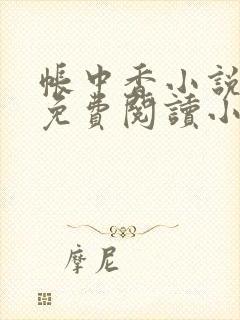 帳中香小說
免費閱讀小
摩尼